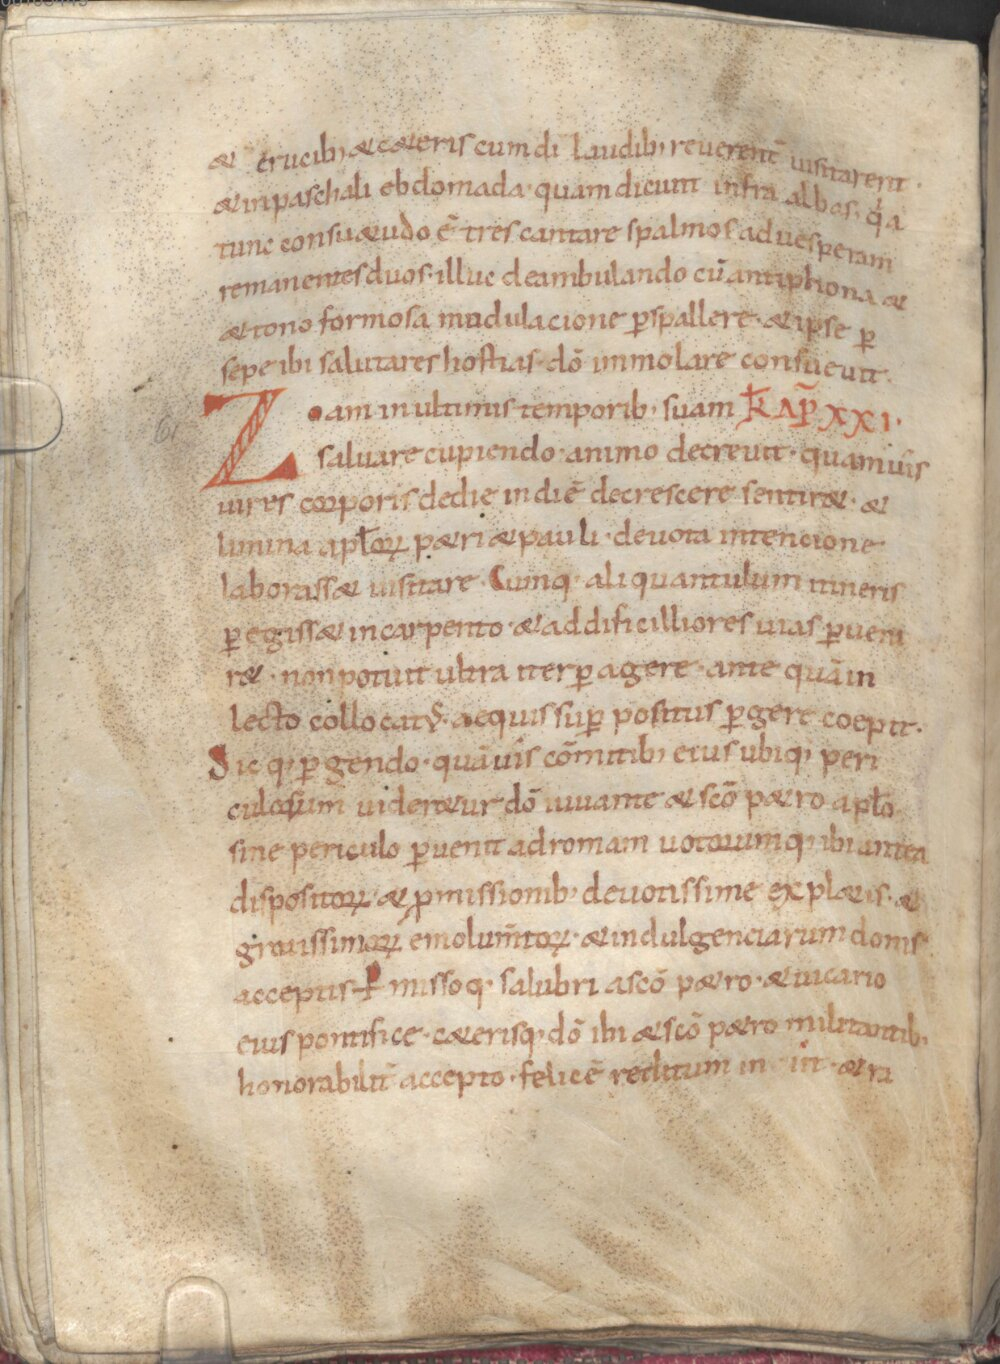 & crucib; & c&eris cum di laudib; reuerent̄ uisitarent.
& in paschali ebdomada. quam dicunt infra albas. q'a
tunc consu&udo ē tres cantare spalmos ad uesperam
remanentes duos. illuc deambulando cū antiphona &
& tono formosa modulacione ꝑspallere. & ipse ꝑ
sepe ibi salutares hostias dō immolare consueuit.
Zoam in ultimis temporib; suam KAP̄ XXI.
saluare cupiendo. animo decreuit. quamuis
uires corporis de die in diē decrescere sentir&. &
limina apłoꝝ p&ri & pauli. deuota intencione
laborass& uisitare. Cumq; aliquantulum itineris
ꝑegiss& in carpento. & ad dificilliores uias ꝑueni
r&. non potuit ultra iter ꝑagere. ante quā in
lecto collocatꝰ. aequis suꝑ positus ꝑgere coepit.
Sicq; ꝑgendo. quāuis cōmitib; eius ubiq; peri
culosum uider&ur dō iuuante & scō p&ro apło.
sine periculo ꝑuenit ad romam uotorumq; ibi antea
dispositoꝝ. & ꝓmissionib; deuotissime expl&is. &
grauissimoꝝ emolum̄toꝝ. & indulgenciarum donis
acceptis. Pmissoq; salubri a scō p&ro. & uicario
eius pontifice. c&erisq; dō ibi & scō p&ro militantib;
honorabilit̄ accepto. felicē reditum in it. & ra